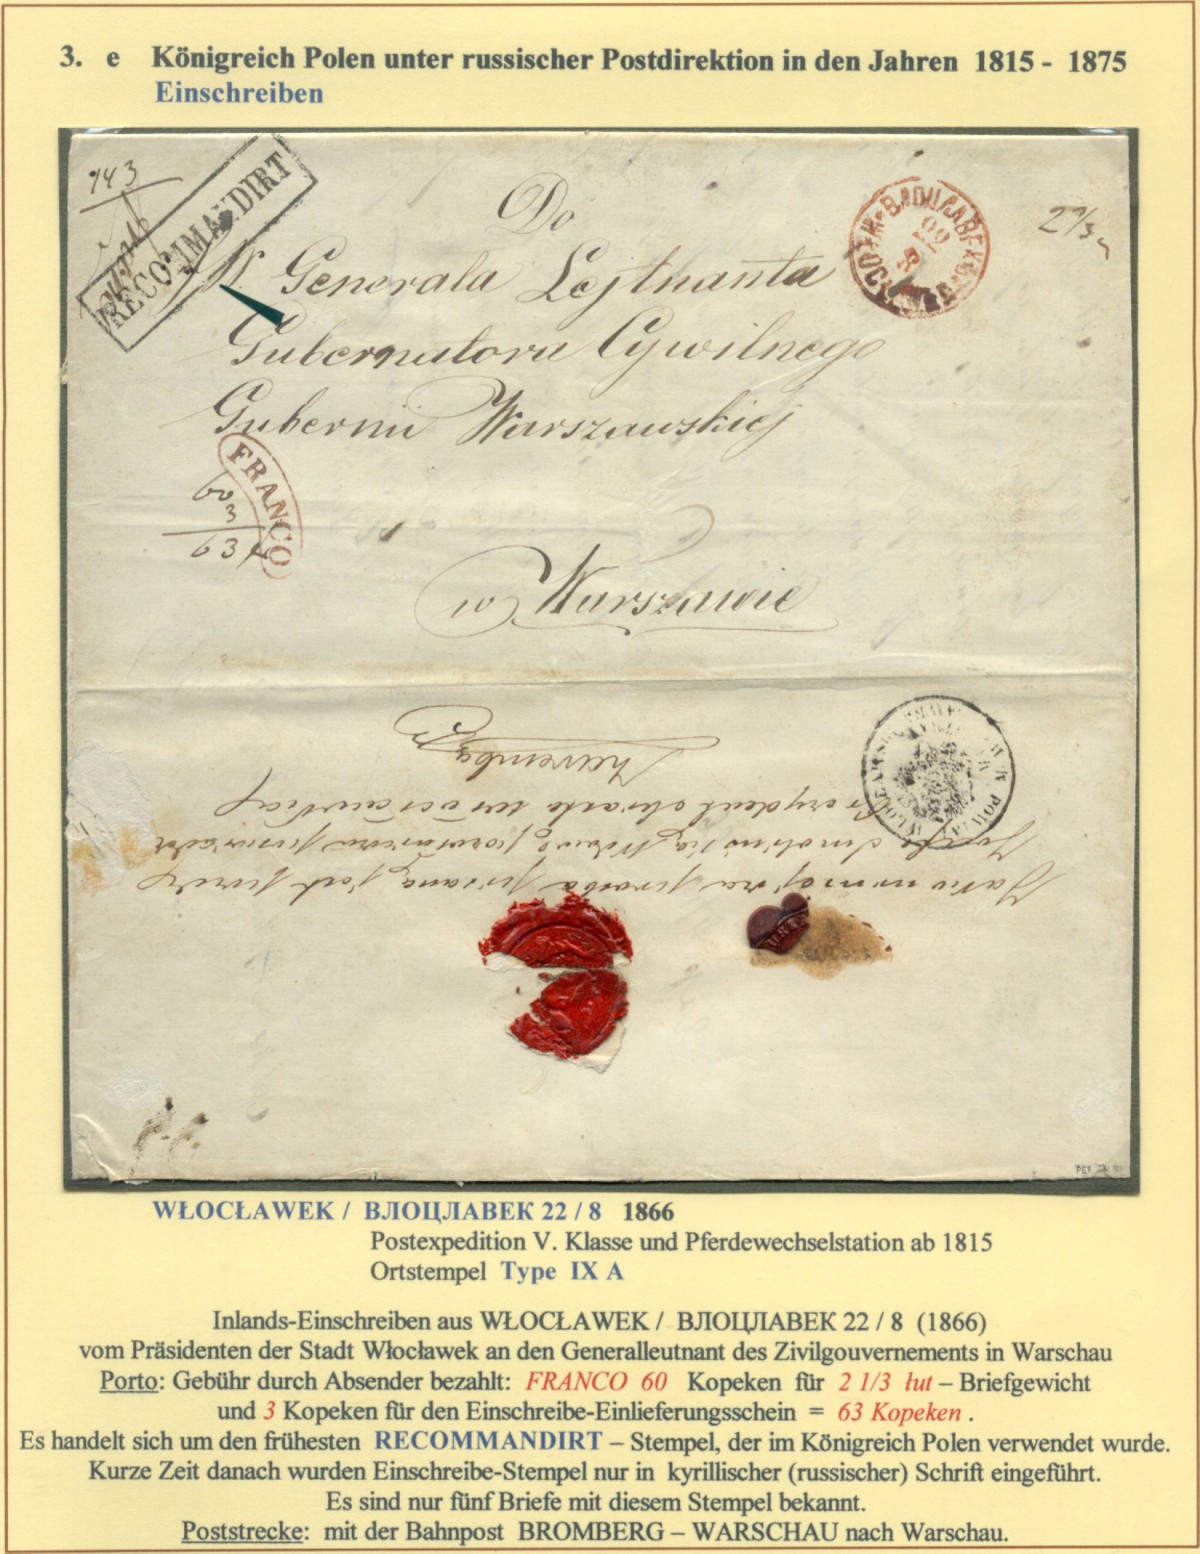 3. e Königreich Polen unter russischer Postdirektion in den Jahren 1815 - 1875
Einschreiben
143
RECOMMANDIRT
Do
W. Generała Lejtnanta
Gubernatora Cywilnego
Gubernii Warszawskiej
FRANCO
60
3
63
w Warszawie
Zaremba
WŁOCŁAWEK / ВЛОЦЛАВЕК 22 / 8 1866
Postexpedition V. Klasse und Pferdewechselstation ab 1815
Ortstempel Type IX A
Inlands-Einschreiben aus WŁOCŁAWEK / ВЛОЦЛАВЕК 22 / 8 (1866)
vom Präsidenten der Stadt Włocławek an den Generalleutnant des Zivilgouvernements in Warschau
Porto: Gebühr durch Absender bezahlt: FRANCO 60 Kopeken für 2 1/3 łut – Briefgewicht
und 3 Kopeken für den Einschreibe-Einlieferungsschein = 63 Kopeken .
Es handelt sich um den frühesten RECOMMANDIRT – Stempel, der im Königreich Polen verwendet wurde.
Kurze Zeit danach wurden Einschreibe-Stempel nur in kyrillischer (russischer) Schrift eingeführt.
Es sind nur fünf Briefe mit diesem Stempel bekannt.
Poststrecke: mit der Bahnpost BROMBERG – WARSCHAU nach Warschau.